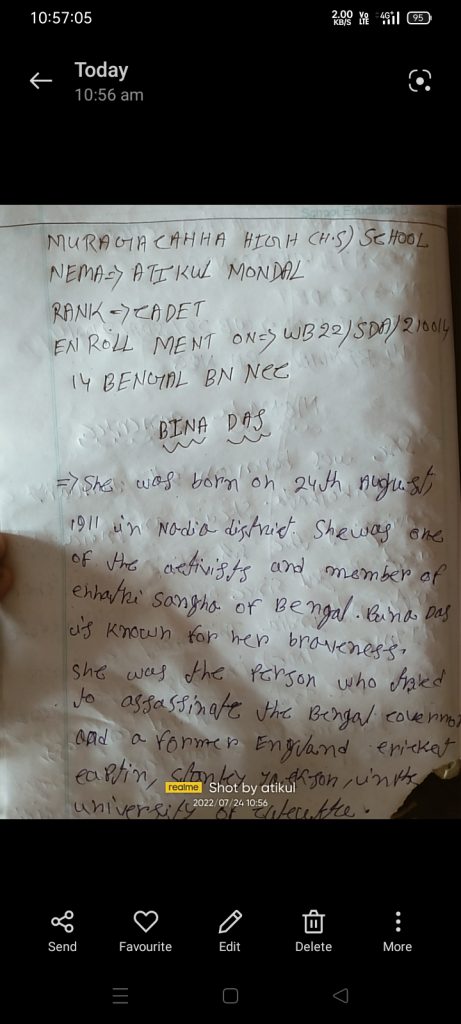 10:57:05
2.00 KB/S Vo LTE 4G+ 95
Today
10:56 am
MURAGACAHHA HIGH (H.S) SCHOOL
NEMA=> ATIKUL MONDAL
RANK => CADET
EN ROLL MENT ON=> WB22/SDA/210014
14 BENGAL BN NCC
BINA DAS
=> She was born on 24th August,
1911 in Nadia district. She was one
of the activists and member of
chhatri Sangha of Bengal. Bina Das
is known for her braveness.
she was the person who tried
to assassinate the Bengal
and a former England cricket
captin, Stanley Jackson, in the
university of
realme Shot by atikul
2022/07/24 10:56
Send Favourite Edit Delete More